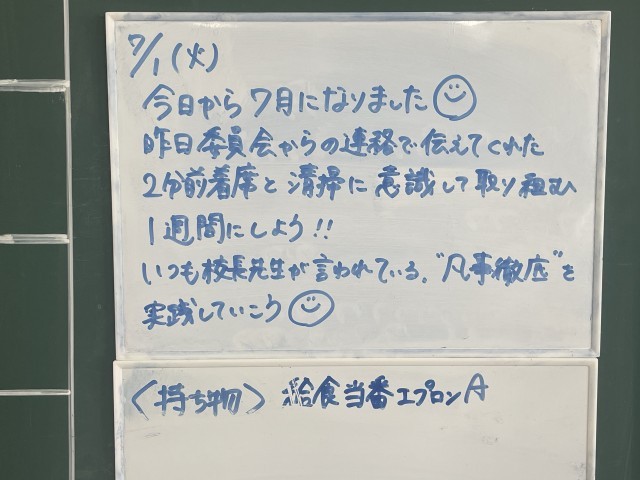 7/1(火)
今日から7月になりました
昨日委員会からの連絡で伝えてくれた
2分前着席と清掃に意識して取り組む
1週間にしよう!!
いつも校長先生が言われている、"凡事徹底"を
実践していこう
〈持ち物〉 給食当番エプロンA